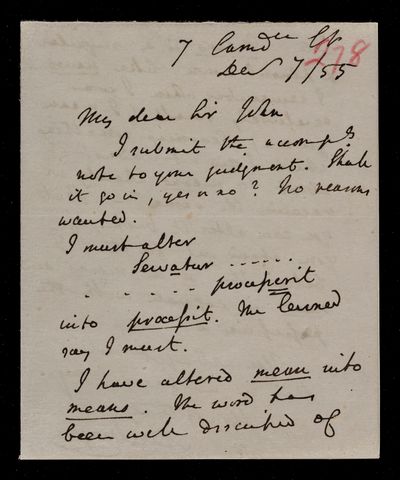 7 Camdn Cr
278
Dec 7/55
My dear Sir John
I submit the accompg
note to your judgment. Shall
it go in, yes or no? No reasons
wanted.
I must alter
Servatur ......
. . . . . . processerit
into processit. The learned
say I must.
I have altered mean into
means. The word has
been well discussed of